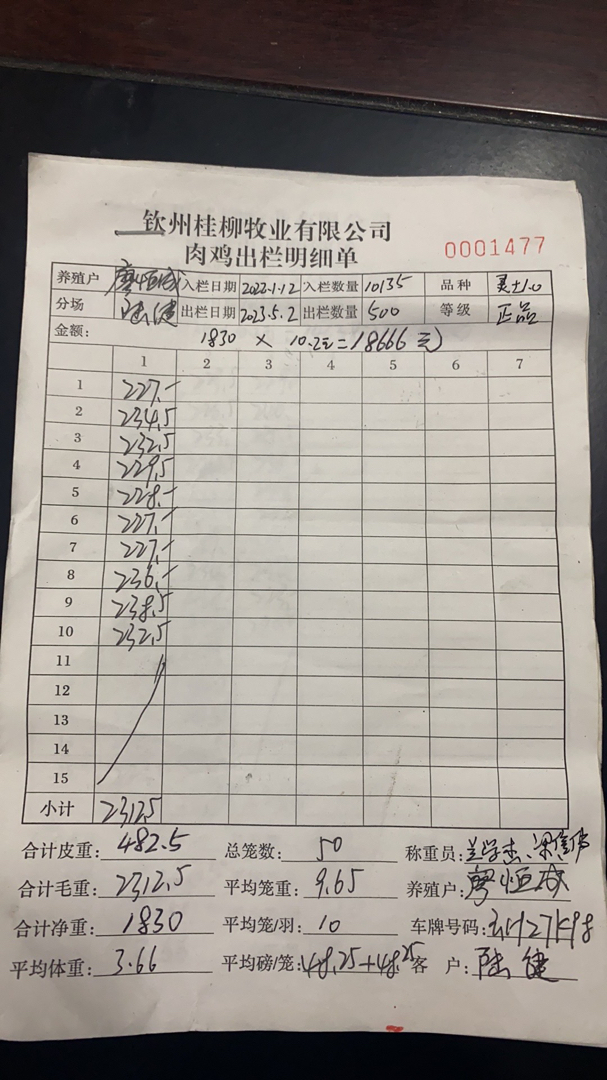 钦州桂柳牧业有限公司
肉鸡出栏明细单
0001477
养殖户 廖恒成 入栏日期 2022.1.12 入栏数量 10135 品种
分场 陆健 出栏日期 2023.5.2 出栏数量 500 等级 正品
金额： 1830 × 10.2元=18666元
1 2 3 4 5 6 7
1 227.-
2 234.5
3 232.5
4 229.5
5 228.-
6 227.-
7 227.-
8 236.-
9 238.5
10 232.5
11
12
13
14
15
小计 2312.5
合计皮重: 482.5 总笼数: 50 称重员:
合计毛重: 2312.5 平均笼重: 9.65 养殖户: 廖恒成
合计净重: 1830 平均笼/羽: 10 车牌号码:
平均体重: 3.66 平均磅/笼: 48.25+48.25 客 户: 陆健